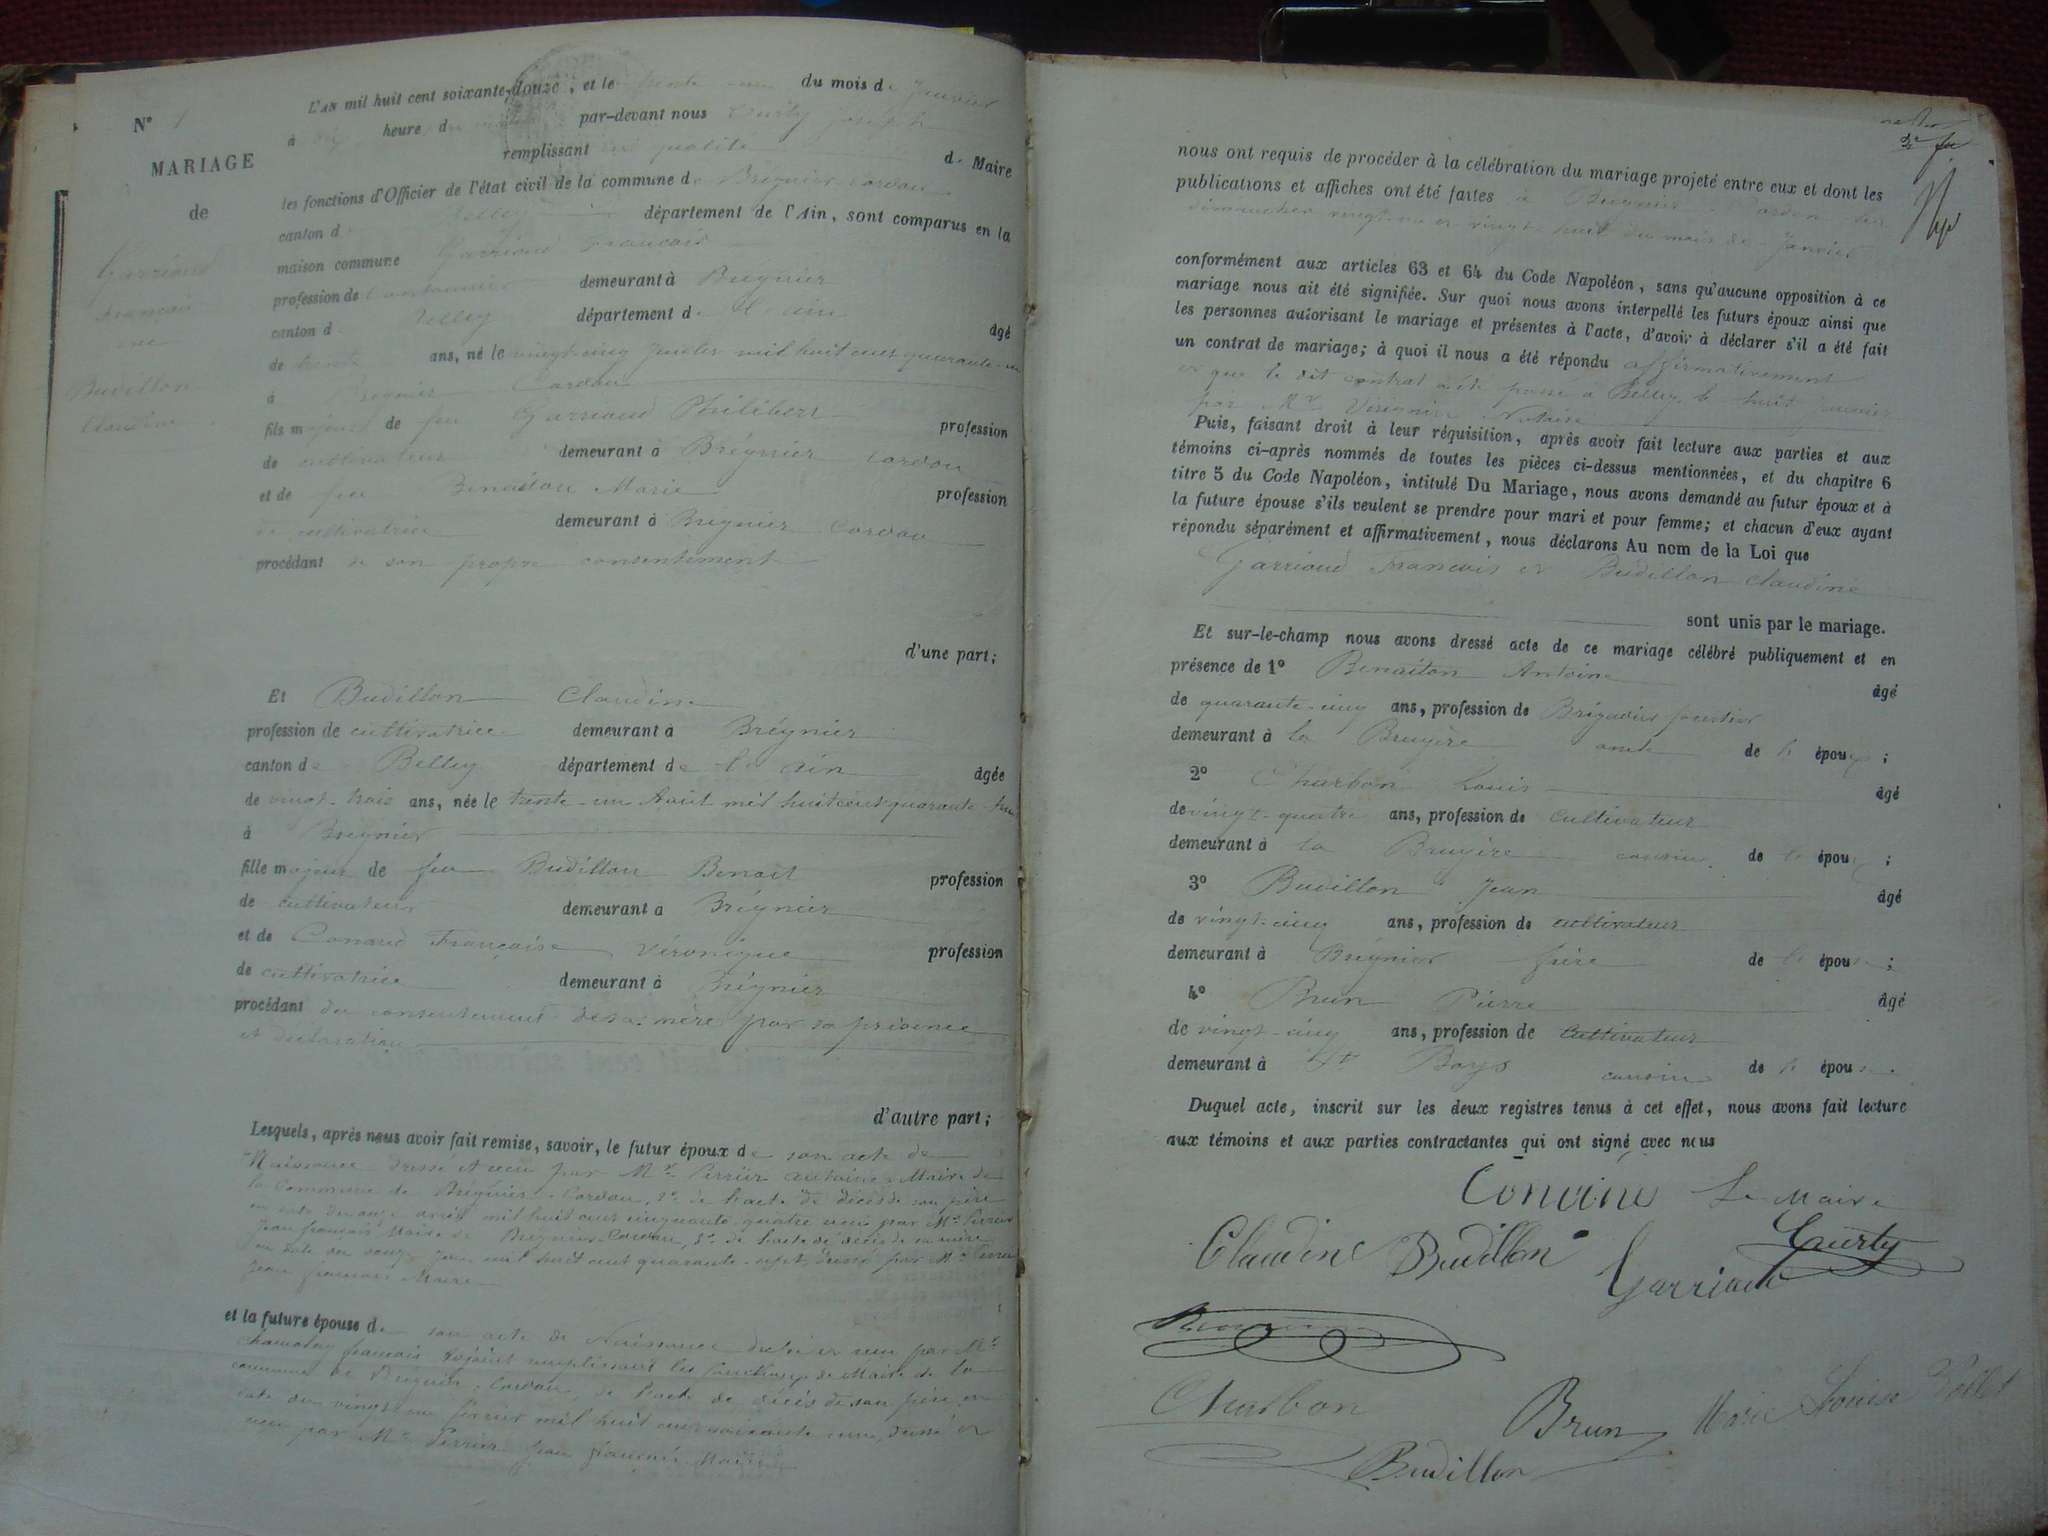 N° 1
MARIAGE
de
Garriaud
François
et
Budillon
Claudine
L'AN mil huit cent soixante-douze, et le trente un du mois de Janvier
à heure du matin par-devant nous Curty Joseph
remplissant en qualité de Maire
les fonctions d'Officier de l'état civil de la commune de Brégnier Cordon
canton de Belley département de l'Ain, sont comparus en la
maison commune Garriaud François
profession de demeurant à Brégnier
canton de Belley département de l'Ain âgé
de trente ans, né le vingt-cinq mil huit cent quarante-un
à Brégnier Cordon
fils majeur de feu Garriaud Philibert profession
de cultivateur demeurant à Brégnier Cordon
et de feu Benaiton Marie profession
de cultivatrice demeurant à Brégnier Cordon
procédant de son propre consentement
d'une part;
Et Budillon Claudine
profession de cultivatrice demeurant à Brégnier
canton de Belley département de l'Ain âgée
de vingt-trois ans, née le trente-un Août mil huit cent quarante-huit
à Brégnier
fille majeure de feu Budillon Benoit profession
de cultivateur demeurant à Brégnier
et de Conand Françoise Véronique profession
de cultivatrice demeurant à Brégnier
procédant du consentement de sa mère par sa présence
et déclaration
d'autre part;
Lesquels, après nous avoir fait remise, savoir, le futur époux de son acte de
Naissance dressé et reçu par Mr Perrier Antoine Maire de
la Commune de Brégnier-Cordon, 2° de l'acte de décès de son père
en date du onze avril mil huit cent cinquante-quatre reçu par Mr Perrier
Jean François Maire de Brégnier-Cordon, 3° de l'acte de décès de sa mère
en date du mil huit cent quarante-sept dressé par Mr Perrier
Jean François Maire
et la future épouse de son acte de Naissance dressé et reçu par Mr
François Adjoint remplissant les fonctions de Maire de la
commune de Brégnier-Cordon, de l'acte de décès de son père en
date du vingt-un février mil huit cent soixante-une, dressé et
reçu par Mr Perrier Jean François Maire
nous ont requis de procéder à la célébration du mariage projeté entre eux et dont les
publications et affiches ont été faites à Brégnier-Cordon les
dimanches vingt-un et vingt-huit du mois de Janvier
conformément aux articles 63 et 64 du Code Napoléon, sans qu'aucune opposition à ce
mariage nous ait été signifiée. Sur quoi nous avons interpellé les futurs époux ainsi que
les personnes autorisant le mariage et présentes à l'acte, d'avoir à déclarer s'il a été fait
un contrat de mariage; à quoi il nous a été répondu affirmativement
et que le dit contrat a été passé à Belley le huit Janvier
par Mr Notaire
Puis, faisant droit à leur réquisition, après avoir fait lecture aux parties et aux
témoins ci-après nommés de toutes les pièces ci-dessus mentionnées, et du chapitre 6
titre 5 du Code Napoléon, intitulé Du Mariage, nous avons demandé au futur époux et à
la future épouse s'ils veulent se prendre pour mari et pour femme; et chacun d'eux ayant
répondu séparément et affirmativement, nous déclarons Au nom de la Loi que
Garriaud François et Budillon Claudine
sont unis par le mariage.
Et sur-le-champ nous avons dressé acte de ce mariage célébré publiquement et en
présence de 1° Benaiton Antoine âgé
de quarante-cinq ans, profession de Brigadier forestier
demeurant à la Bruyère oncle de l' époux ;
2° Charbon Louis âgé
de vingt-quatre ans, profession de cultivateur
demeurant à la Bruyère cousin de l' époux ;
3° Budillon Jean âgé
de vingt-cinq ans, profession de cultivateur
demeurant à Brégnier frère de l' épouse ;
4° Brun Pierre âgé
de vingt-cinq ans, profession de cultivateur
demeurant à St Boys cousin de l' épouse
Duquel acte, inscrit sur les deux registres tenus à cet effet, nous avons fait lecture
aux témoins et aux parties contractantes qui ont signé avec nous
Le Maire
Claudine Budillon Garriaud Curty
Charbon Brun Marie Louise
Budillon